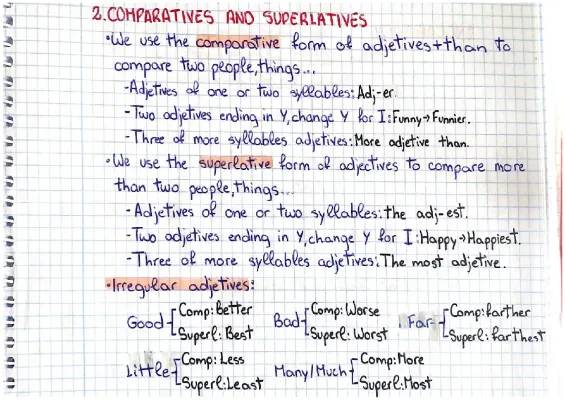 2. COMPARATIVES AND SUPERLATIVES
•We use the comparative form of adjetives+than to
compare two people, things...
-Adjetives of one or two syllables: Adj-er.
-Two adjetives ending in Y, change Y for I: Funny→Funnier.
-Three of more syllables adjetives: More adjetive than.
•We use the superlative form of adjectives to compare more
than two people, things...
-Adjetives of one or two syllables: the adj-est.
-Two adjetives ending in Y, change Y for I: Happy→Happiest.
-Three of more syllables adjetives: The most adjetive.
•Irregular adjetives:
Good Comp: better Superl: Best
Bad Comp: Worse Superl: Worst
Far Comp: farther Superl: farthest
Little Comp: Less Superl: Least
Many/Much Comp: More Superl: Most